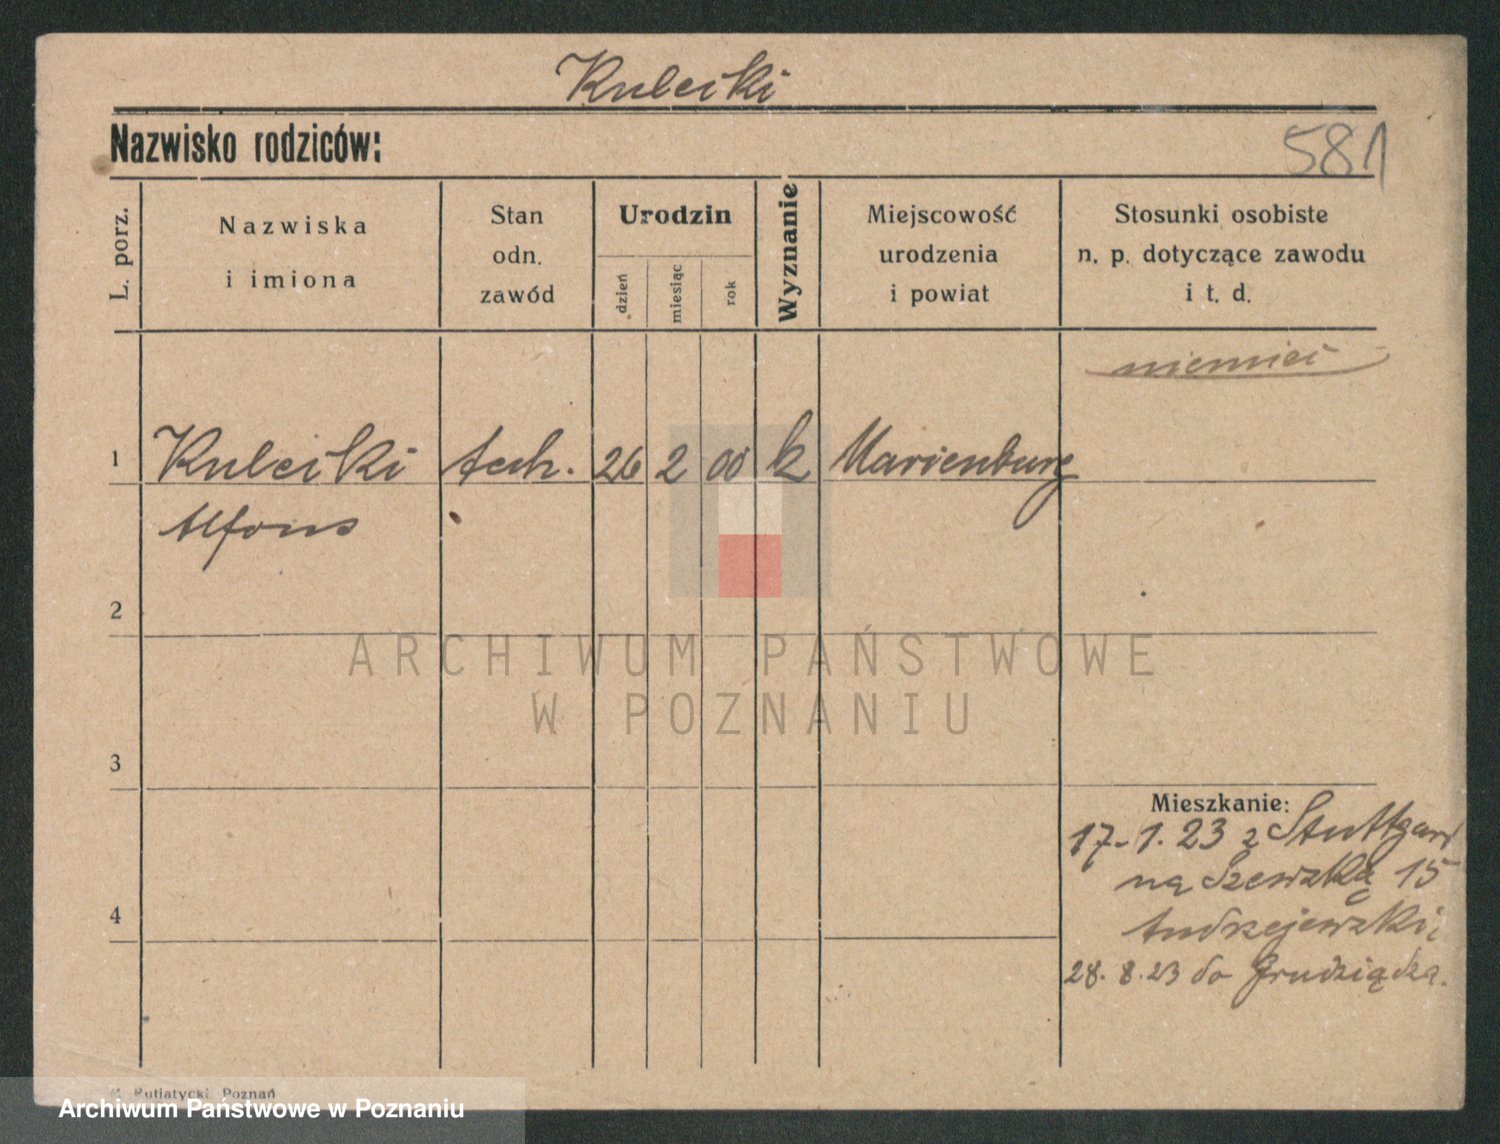 Kulciki
Nazwisko rodziców:
581
L. porz.
Nazwiska
i imiona
Stan
odn.
zawód
Urodzin
dzień
miesiąc
rok
Wyznanie
Miejscowość
urodzenia
i powiat
Stosunki osobiste
n. p. dotyczące zawodu
i t. d.
niemiec
1 Kulciki tech. 26 2 00 k Marienburg
Alfons
2
ARCHIWUM PAŃSTWOWE
W POZNANIU
3
Mieszkanie:
17-1.23 z Stuttgart
na Szewską 15
Andrzejewski
4
28.8.23 do Grudziądza.
M. Putiatycki, Poznań
Archiwum Państwowe w Poznaniu